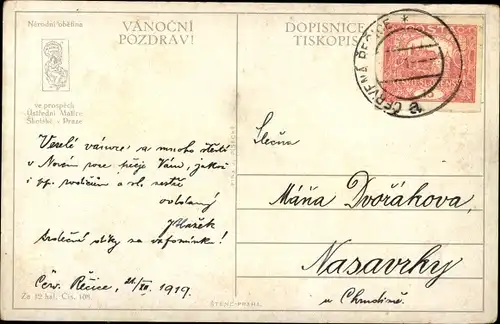 Národní oběťina
VÁNOČNÍ
POZDRAV!
DOPISNICE
TISKOPIS
ČERVENÁ ŘEČICE
ve prospěch
Ústřední Matice
Školské v Praze
Veselé vánoce a mnoho štěstí
v Novém roce přeje Vám, jakož
i
oddaný
Srdečné díky za vzpomínku!
Čer. Řečice, 21/XII. 1919.
Za 12 hal. Čís. 108.
ŠTENC-PRAHA
Slečna
Máňa Dvořáková,
Nasavrky
u Chrudimě.